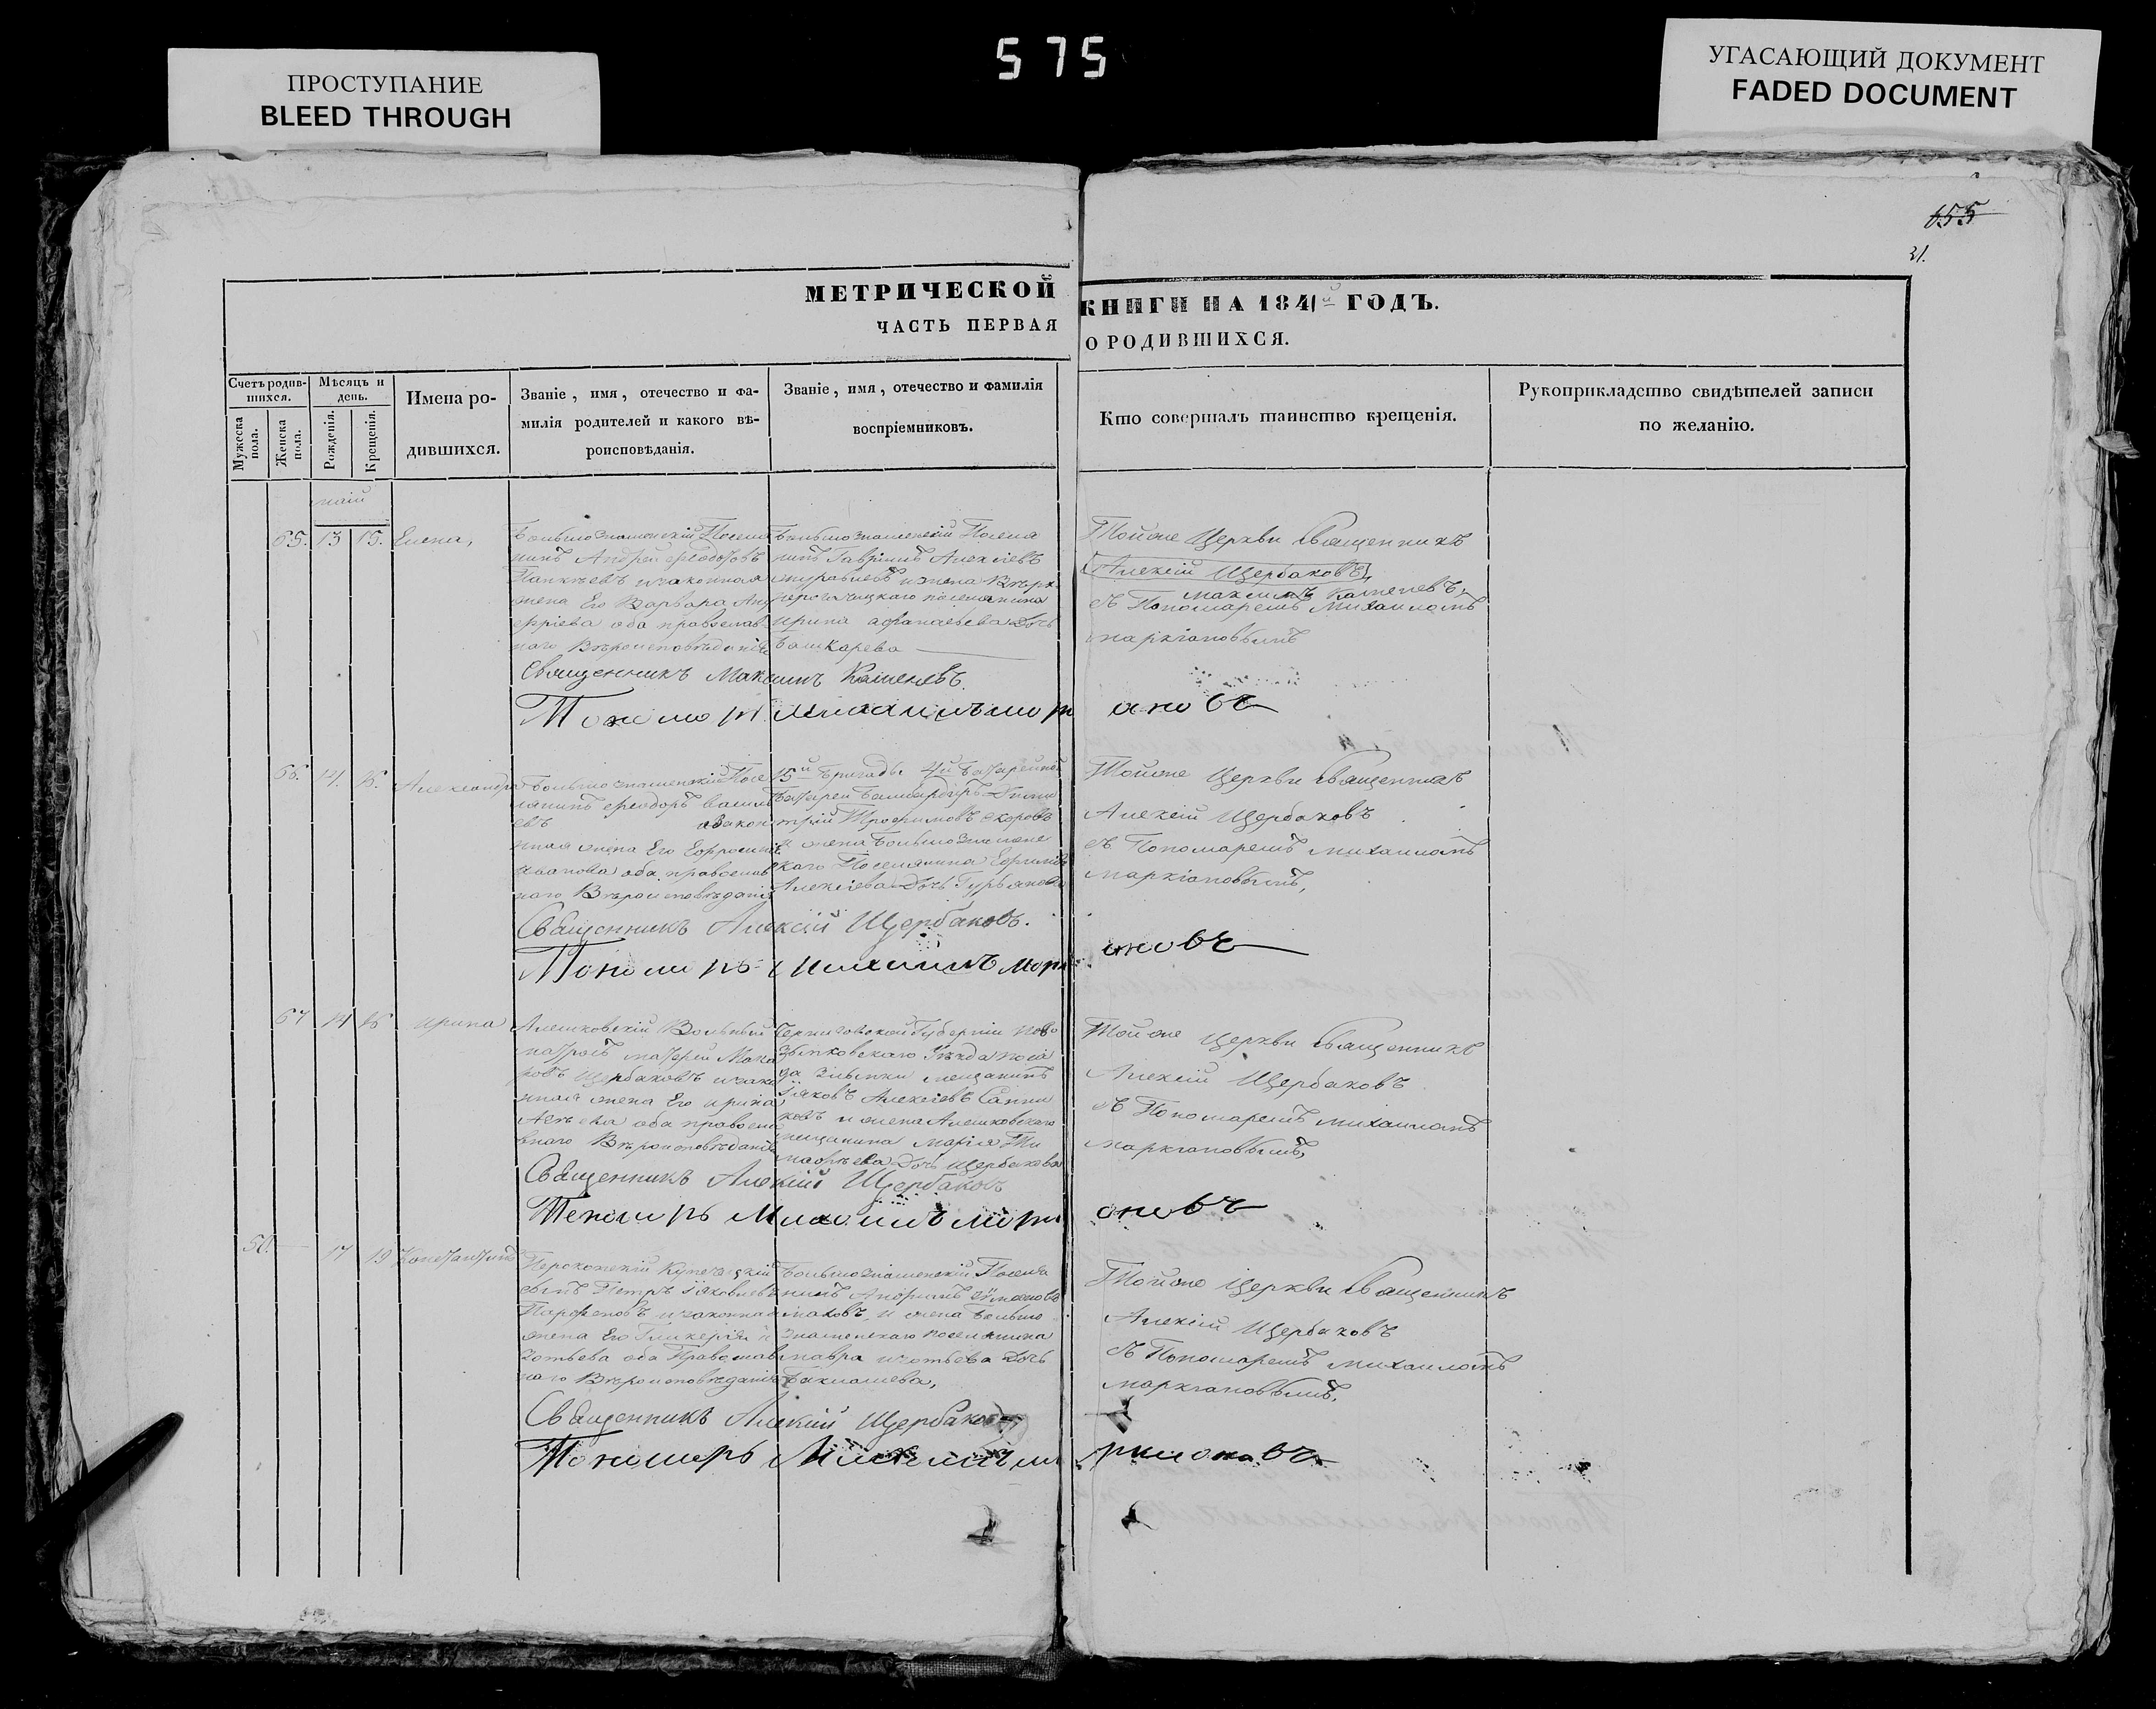 575
ПРОСТУПАНИЕ
BLEED THROUGH
УГАСАЮЩИЙ ДОКУМЕНТ
FADED DOCUMENT
655
21.
МЕТРИЧЕСКОЙ КНИГИ НА 1841й ГОДЪ.
ЧАСТЬ ПЕРВАЯ О РОДИВШИХСЯ.
Счетъ родив-
шихся.
Мужеска
пола.
Женска
пола.
Мѣсяцъ и
день.
Рожденія.
Крещенія.
Имена ро-
дившихся.
Званіе, имя, отечество и фа-
милія родителей и какого вѣ-
роисповѣданія.
Званіе, имя, отечество и фамилія
воспріемниковъ.
Кто совершалъ таинство крещенія.
Рукоприкладство свидѣтелей записи
по желанію.
маій
65. 13 15. Елена,
Большознаменскій Поселя
нинъ Андрей Феодоровъ
изаконная
жена Его Варвара Анд
еріева оба православ
наго Вѣроисповѣданія
Большознаменскій Поселя
нинъ Гавріилъ Алексіевъ
журавлевъ ижена Верх
нерогачицкаго поселянина
ирина афанасьева дочь
Башкарева
Тойже Церкви Священникъ
Алексій Щербаковъ
Максимъ Каменевъ,
съ Пономаремъ Михаиломъ
маркіановымъ
Священникъ Максимъ Каменевъ.
Пономарь Михаилъ мар ановъ
66. 14. 16. Александра
Большознаменскій Посе
лянинъ Феодоръ васил
евъ изакон
ная жена Его Ефросинія
иванова оба православ
наго Вѣроисповѣданія
15й Бригады 4й Батарейной
Батареи Бамбардиръ Дими
трій Трофимовъ
и жена Большознамен
скаго Поселянина
Алексіева Дочь Гурьянова
Тойже Церкви Священникъ
Алексій Щербаковъ
съ Пономаремъ михаиломъ
маркіановымъ,
Священникъ Алексій Щербаковъ.
Пономарь Михаилъ Марк ановъ
67 14 16 ирина
Алешковскій Вольный
матросъ Мака
ровъ Щербаковъ изако
нная жена Его ирина
оба правосла
внаго Вѣроисповѣданія
Черниговской Губерніи Ново
зыбковскаго Уѣзда поса
да Злынки мещанинъ
Іаковъ Алексіевъ Санни
ковъ и жена Алешковскаго
мещанина Марія Ти
мофѣева Дочь Щербакова
Тойже Церкви Священникъ
Алексій Щербаковъ
съ Пономаремъ михаиломъ
маркіановымъ,
Священникъ Алексій Щербаковъ
Пономарь Михаилъ Марк ановъ
50. 17 19 Константинъ
Перекопскій Купеческій
сынъ Петръ Іаковлевъ
Парфеновъ изаконная
жена Его Гликерія и
зотьева оба Православ
наго Вѣроисповѣданія
Большознаменскій Поселя
нинъ
и жена Больше
знаменскаго поселянина
мавра изотьева Дочь
Бакланева,
Тойже Церкви Священникъ
Алексій Щербаковъ
съ Пономаремъ Михаиломъ
маркіановымъ.
Священникъ Алексій Щербаковъ
Пономарь Михаилъ ма ркиановъ